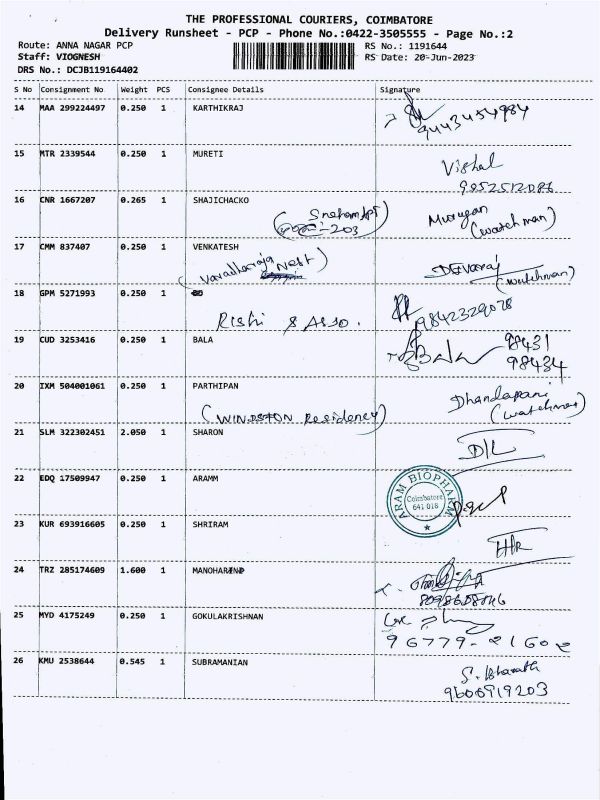 THE PROFESSIONAL COURIERS, COIMBATORE
Delivery Runsheet - PCP - Phone No.:0422-3505555 - Page No.:2
Route: ANNA NAGAR PCP
RS No.: 1191644
Staff: VIOGNESH
RS Date: 20-Jun-2023
DRS No.: DCJB119164402
S No Consignment No Weight PCS Consignee Details Signature
14 MAA 299224497 0.250 1 KARTHIKRAJ
9443454984
15 MTR 2339544 0.250 1 MURETI
Vishal
9852512086
16 CNR 1667207 0.265 1 SHAJICHACKO
(Sneham Apt
-203)
Murugan
(watchman)
17 CMM 837407 0.250 1 VENKATESH
(Varadharaja Nest)
Devaraj
(watchman)
18 GPM 5271993 0.250 1
Rishi & Asso.
9842329078
19 CUD 3253416 0.250 1 BALA
Bala
98431
98434
20 IXM 504001061 0.250 1 PARTHIPAN
(WINDSTON Residency)
Dhandapani
(watchman)
21 SLM 322302451 2.050 1 SHARON
D/L
22 EDQ 17509947 0.250 1 ARAMM
ARAM BIOPHARM
Coimbatore
641 018
23 KUR 693916605 0.250 1 SHRIRAM
24 TRZ 285174609 1.600 1 MANOHAR
8098608046
25 MYD 4175249 0.250 1 GOKULAKRISHNAN
96779-21602
26 KMU 2538644 0.545 1 SUBRAMANIAN
S. Bharath
9600919203